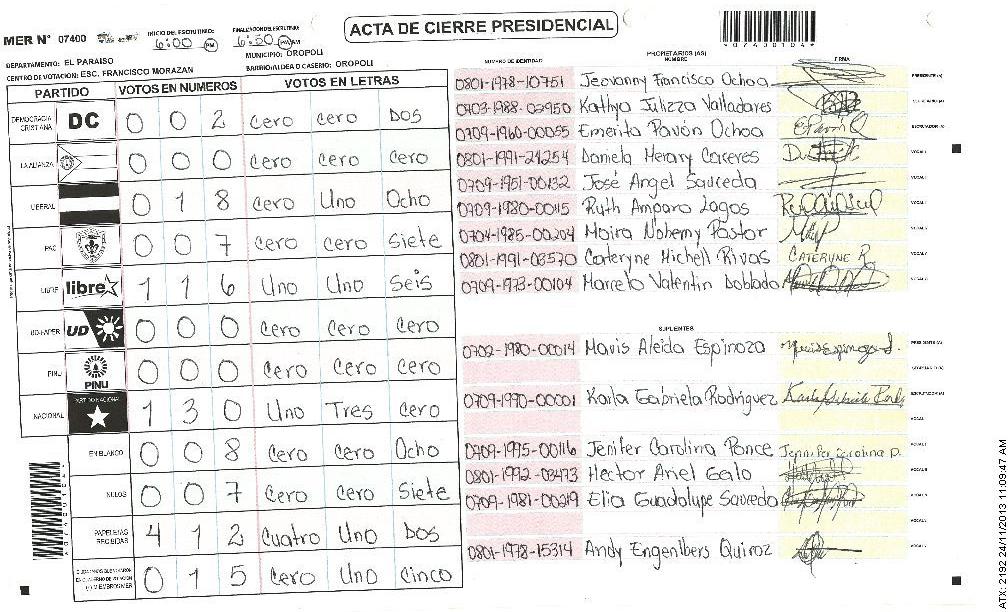 ACTA DE CIERRE PRESIDENCIAL
MER N° 07400
INICIO DEL ESCRUTINIO: 6:00 PM
FINALIZACION DEL ESCRUTINIO: 6:50 PM AM
DEPARTAMENTO: EL PARAISO
MUNICIPIO: OROPOLI
CENTRO DE VOTACION: ESC. FRANCISCO MORAZAN
BARRIO/ALDEA O CASERIO: OROPOLI
PARTIDO VOTOS EN NUMEROS VOTOS EN LETRAS
DEMOCRACIA CRISTIANA DC 0 0 2 cero cero Dos
LA ALIANZA 0 0 0 cero cero cero
LIBERAL 0 1 8 cero Uno Ocho
PAC 0 0 7 cero cero Siete
LIBRE libre 1 1 6 Uno Uno Seis
UD-FAPER UD 0 0 0 cero cero cero
PINU PINU 0 0 0 cero cero cero
NACIONAL PARTIDO NACIONAL 1 3 0 Uno Tres cero
EN BLANCO 0 0 8 cero cero Ocho
NULOS 0 0 7 cero cero Siete
PAPELETAS RECIBIDAS 4 1 2 cuatro Uno Dos
0 1 5 cero Uno cinco
NUMERO DE IDENTIDAD PROPIETARIOS (AS) NOMBRE FIRMA
0801-1978-10751 Jeovanny Francisco Ochoa PRESIDENTE (A)
0703-1988-02950 Kathya Julizza Valladares SECRETARIO (A)
0709-1960-00055 Emerita Pavón Ochoa EPavonO ESCRUTADOR (A)
0801-1991-21254 Daniela Merary Caceres VOCAL I
0709-1951-00132 José Angel Sauceda
0709-1980-00115 Ruth Amparo Lagos
0704-1985-00204 Moira Nohemy Pastor
0801-1991-03570 Cateryne Michell Rivas CATERYNE R
0709-1973-00104 Marcelo Valentin Doblado
SUPLENTES
0702-1980-00014 Mavis Aleida Espinoza PRESIDENTE (A)
SECRETARIO (A)
0709-1990-00001 Karla Gabriela Rodriguez ESCRUTADOR (A)
0709-1995-00116 Jenifer Carolina Ponce Jennifer Carolina P.
0801-1992-03473 Hector Ariel Galo
0709-1981-00219 Elia Guadalupe Sauceda
0801-1978-15314 Andy Engenlbers Quiroz
*07400104*
ATX: 2192 24/11/2013 11:09:47 AM